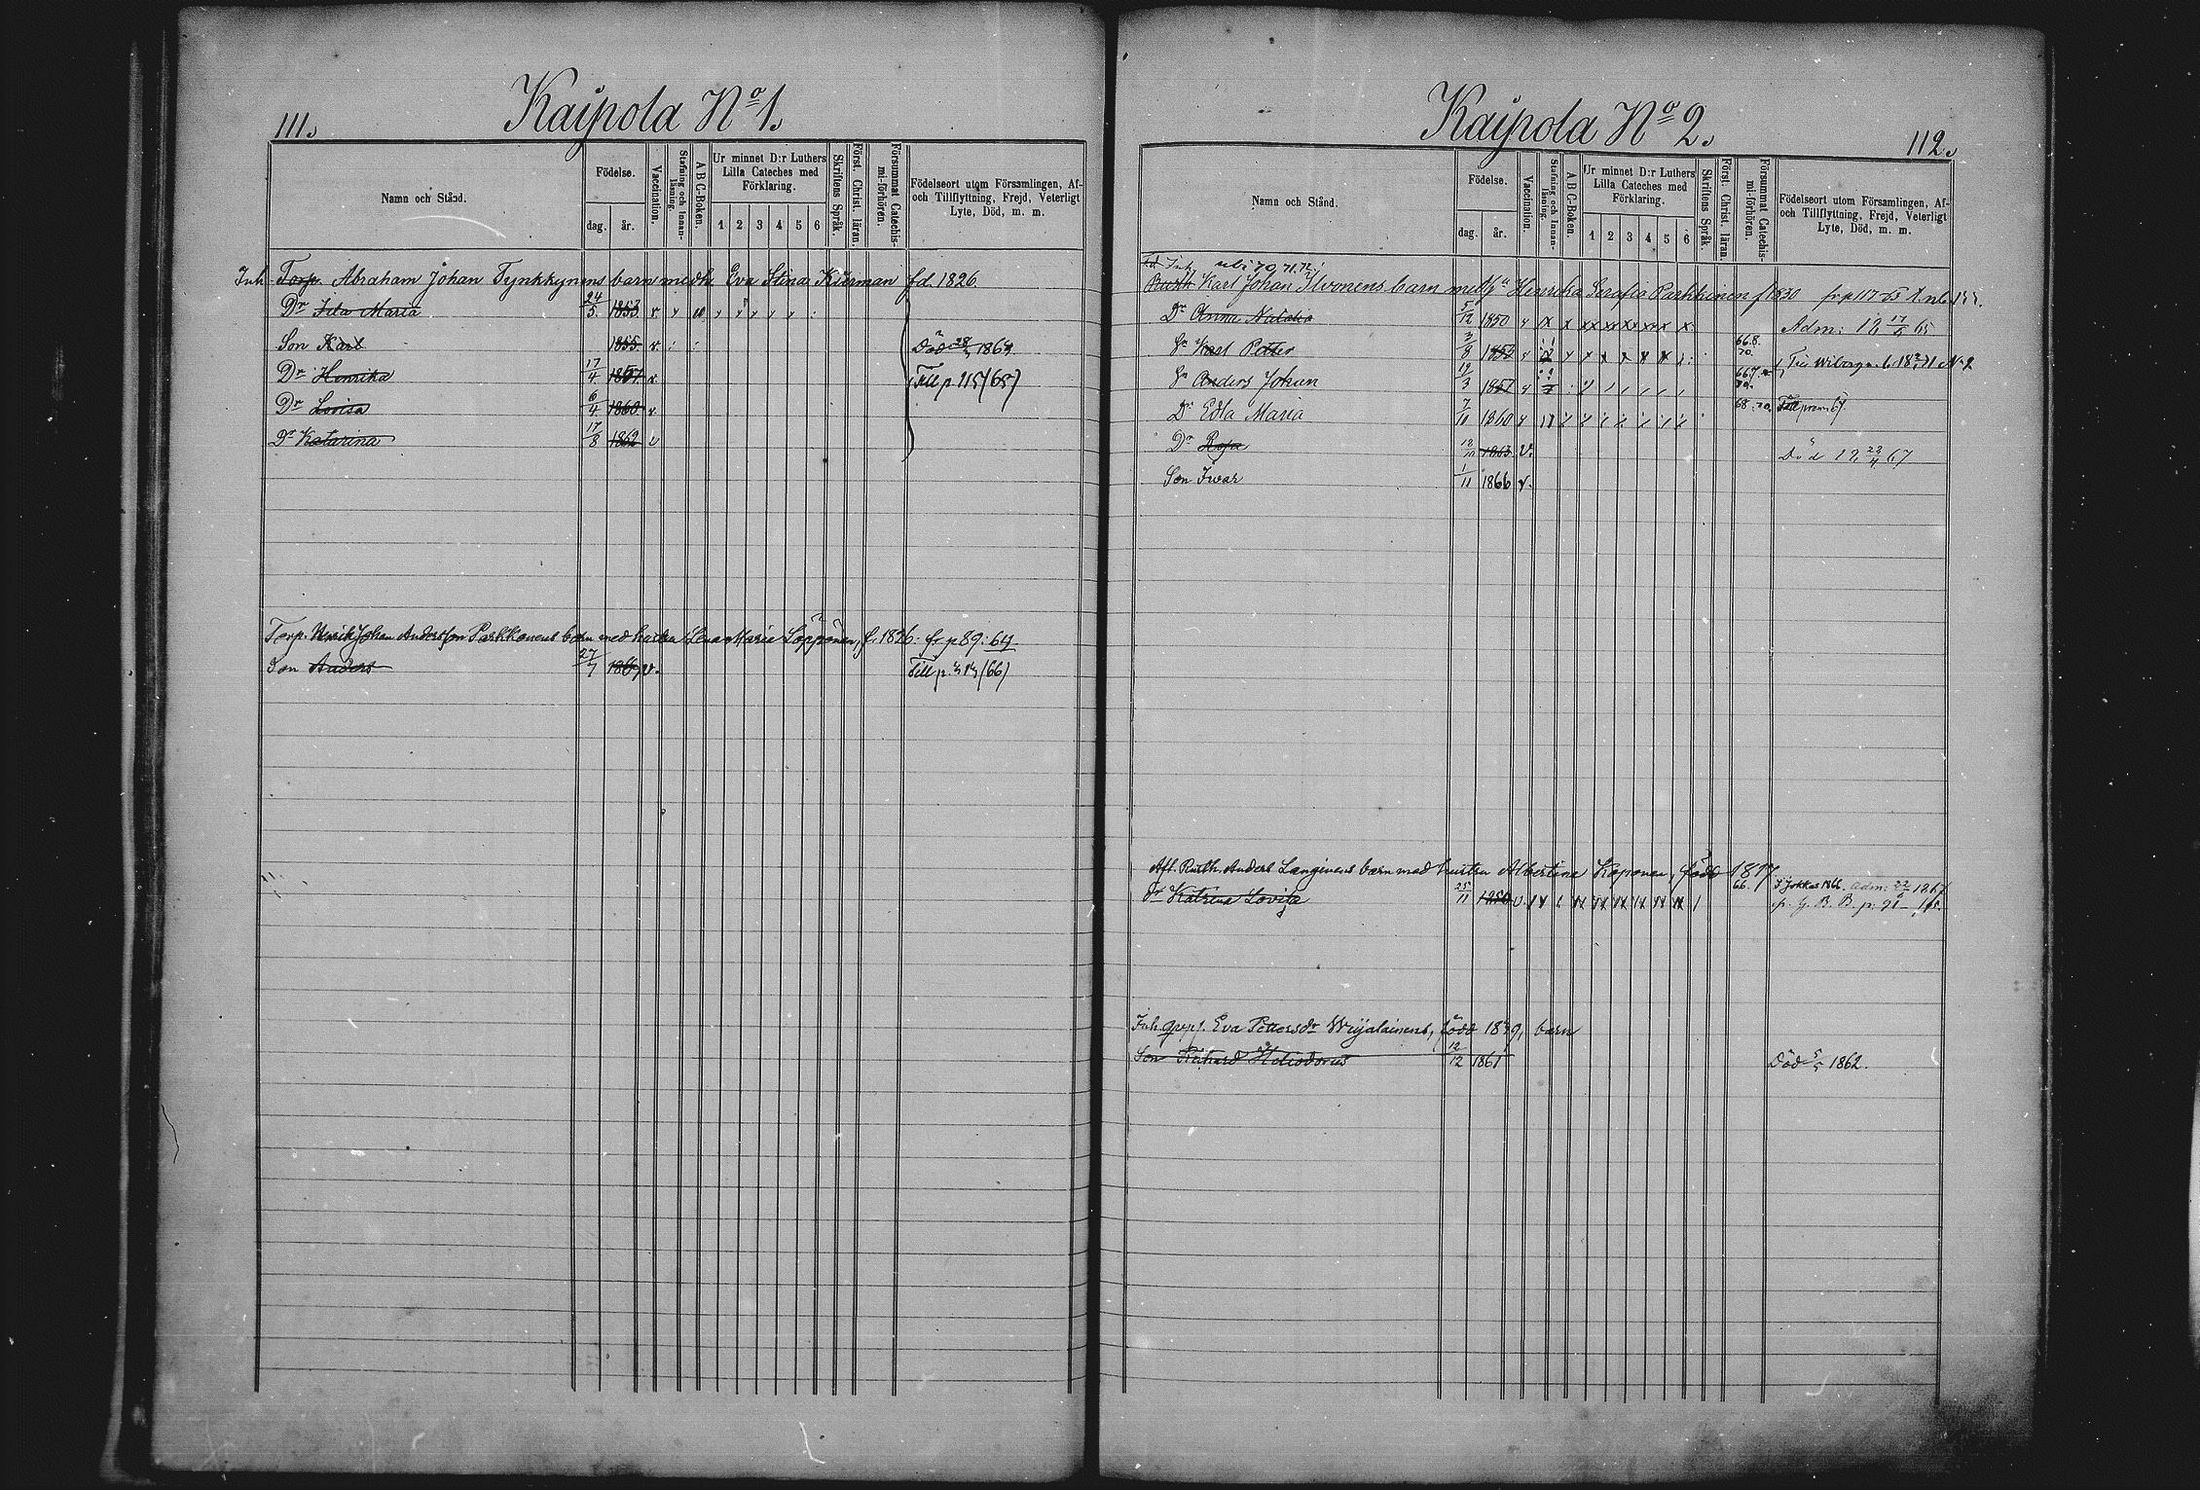 111.
Kaipola No 1.
Namn och Stånd.
Födelse.
dag.
år.
Vaccination.
Stafning och Innanläsning.
A B C-Boken.
Ur minnet D:r Luthers Lilla Cateches med Förklaring.
1 2 3 4 5 6
Skriftens Språk.
Först. Christ. läran.
Försummat Catechismi-förhören.
Födelseort utom Församlingen, Af- och Tillflyttning, Frejd, Veterligt Lyte, Död, m. m.
Inh. Torp. Abraham Johan Tynkkynens barn med h. Eva Stina Kiierman fd. 1826.
Dr Ida Maria 24/5 1853 v
Son Karl 1855 v. Död 1864
Dr Henrika 17/4 1857 v. Till p 115 (65)
Dr Lovisa 6/4 1860 v.
Dr Katarina 17/8 1862 v
Torp. Johan Andersson Parkkonens barn med hustru Lena Maria Loppönen, f. 1826: fr p 89: 64
Son Anders 27/7 v. Till p. (66)
Kaipola No 2.
112.
Namn och Stånd.
Födelse.
dag.
år.
Vaccination.
Stafning och Innanläsning.
A B C-Boken.
Ur minnet D:r Luthers Lilla Cateches med Förklaring.
1 2 3 4 5 6
Skriftens Språk.
Först. Christ. läran.
Försummat Catechismi-förhören.
Födelseort utom Församlingen, Af- och Tillflyttning, Frejd, Veterligt Lyte, Död, m. m.
Inh. 70, 71, 72.
Karl Johan Ilvonens barn med Henrika Serafia Parkkinen f 1830 fr p 117 65
Dr Anna Natalia 5/12 1850 Adm: 18 17/6 65
Sn Karl Petter 3/8 1852 66.8. 70. Till Wiborg
Sn Anders Johan 19/3 1857
Dr Edla Maria 7/11 1860 68. 70.
Dr Rosa 12/10 1863 v. Död 18 23/4 67
Son Iwar 1/11 1866 v.
Aft. Rusth. Anders Langinens barn med hustru Albertina Kaponen, född 1817
Dr Katrina Lovisa 25/11 1850 66. I Jokkas 1866. Adm: 1867
Inh. qvpn. Eva Pettersdr Wiijalainens, född 1839, barn
Son Richard Heliodorus 12/12 1861 Död 1862.